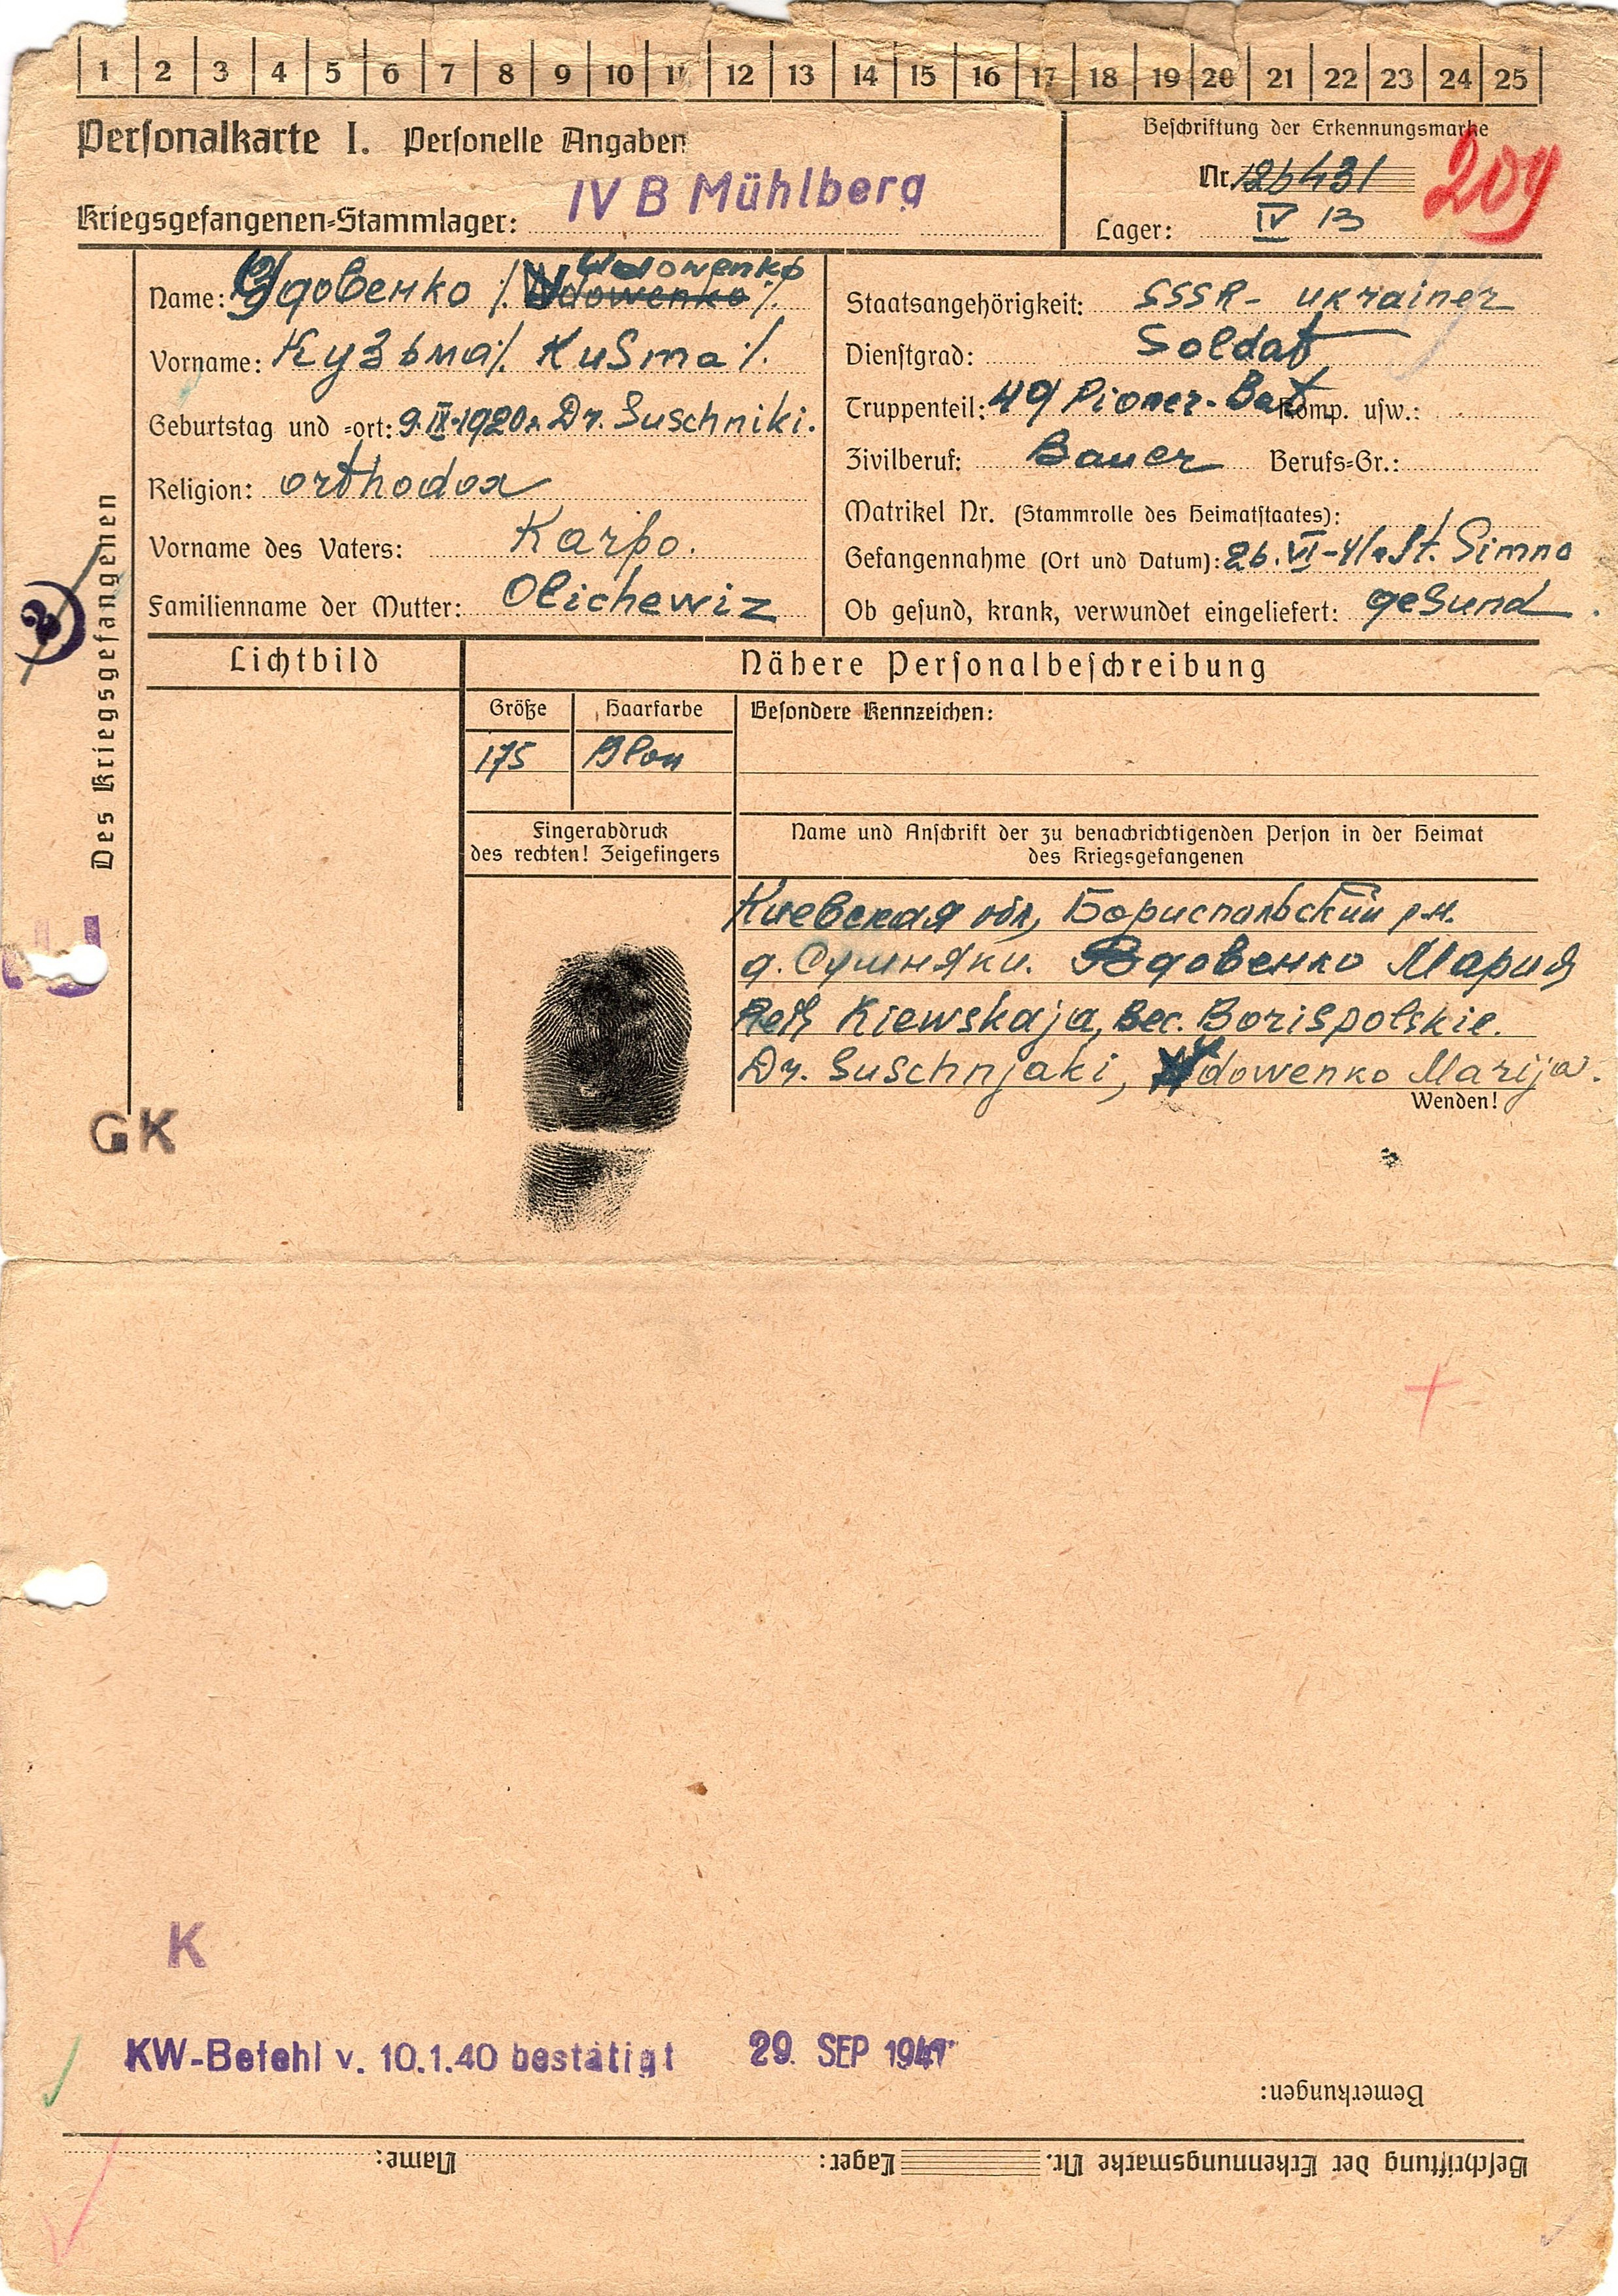 1 2 3 4 5 6 7 8 9 10 11 12 13 14 15 16 17 18 19 20 21 22 23 24 25
Personalkarte I. Personelle Angaben
Beschriftung der Erkennungsmarke
Nr. 126431
209
IV B Mühlberg
Kriegsgefangenen=Stammlager:
Lager: IV B
Des Kriegsgefangenen
Wdowenko
Name: Вдовенко /. Wdowenko /.
Vorname: Кузьма /. Kusma /.
Geburtstag und =ort: 9.IX.1920. Dr. Suschniki.
Religion: orthodox
Vorname des Vaters: Karpo.
Familienname der Mutter: Olichewiz
Staatsangehörigkeit: SSSR - Ukrainer
Dienstgrad: Soldat
Truppenteil: 49 Pioner-Bat Komp. usw.:
Zivilberuf: Bauer Berufs=Gr.:
Matrikel Nr. (Stammrolle des Heimatstaates):
Gefangennahme (Ort und Datum): 26.VI-41. St. Simno
Ob gesund, krank, verwundet eingeliefert: gesund
Lichtbild
Nähere Personalbeschreibung
Größe Haarfarbe Besondere Kennzeichen:
175 Blon
Fingerabdruck
des rechten! Zeigefingers
Name und Anschrift der zu benachrichtigenden Person in der Heimat
des Kriegsgefangenen
Киевская обл, Бориспольский р.н.
д. Сушняки. Вдовенко Мария
Kiewskaja, Bec. Borispolskie.
Dr. Suschnjaki, Wdowenko Marija.
Wenden!
GK
K
KW-Befehl v. 10.1.40 bestätigt 29. SEP 1941
Bemerkungen:
Beschriftung der Erkennungsmarke Nr. Lager: Name: